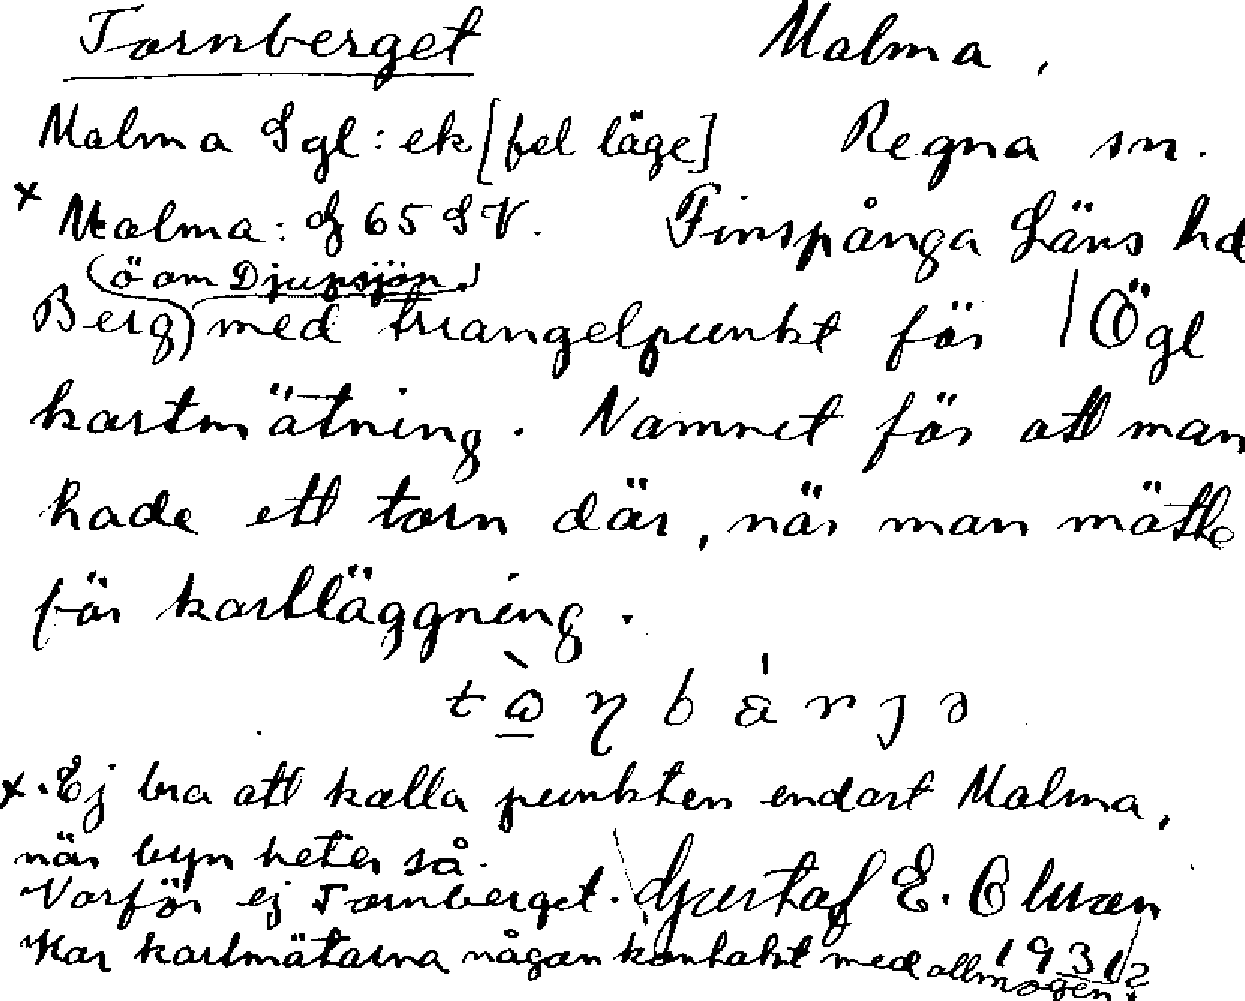 Tornberget Malma,
Malma Sgl: ek [fel läge] Regna sn.
x Malma: G 65 SV. Finspånga Läns hd
(ö om Djupsjön)
Berg med triangelpunkt för Ögl
kartmätning. Namnet för att man
hade ett torn där, när man mätte
för kartläggning.
x. Ej bra att kalla punkten endast Malma,
när byn heter så.
Varför ej Tornberget. Gustaf E. Olsson
Har kartmätarna någon kontakt med allmogen? 1931